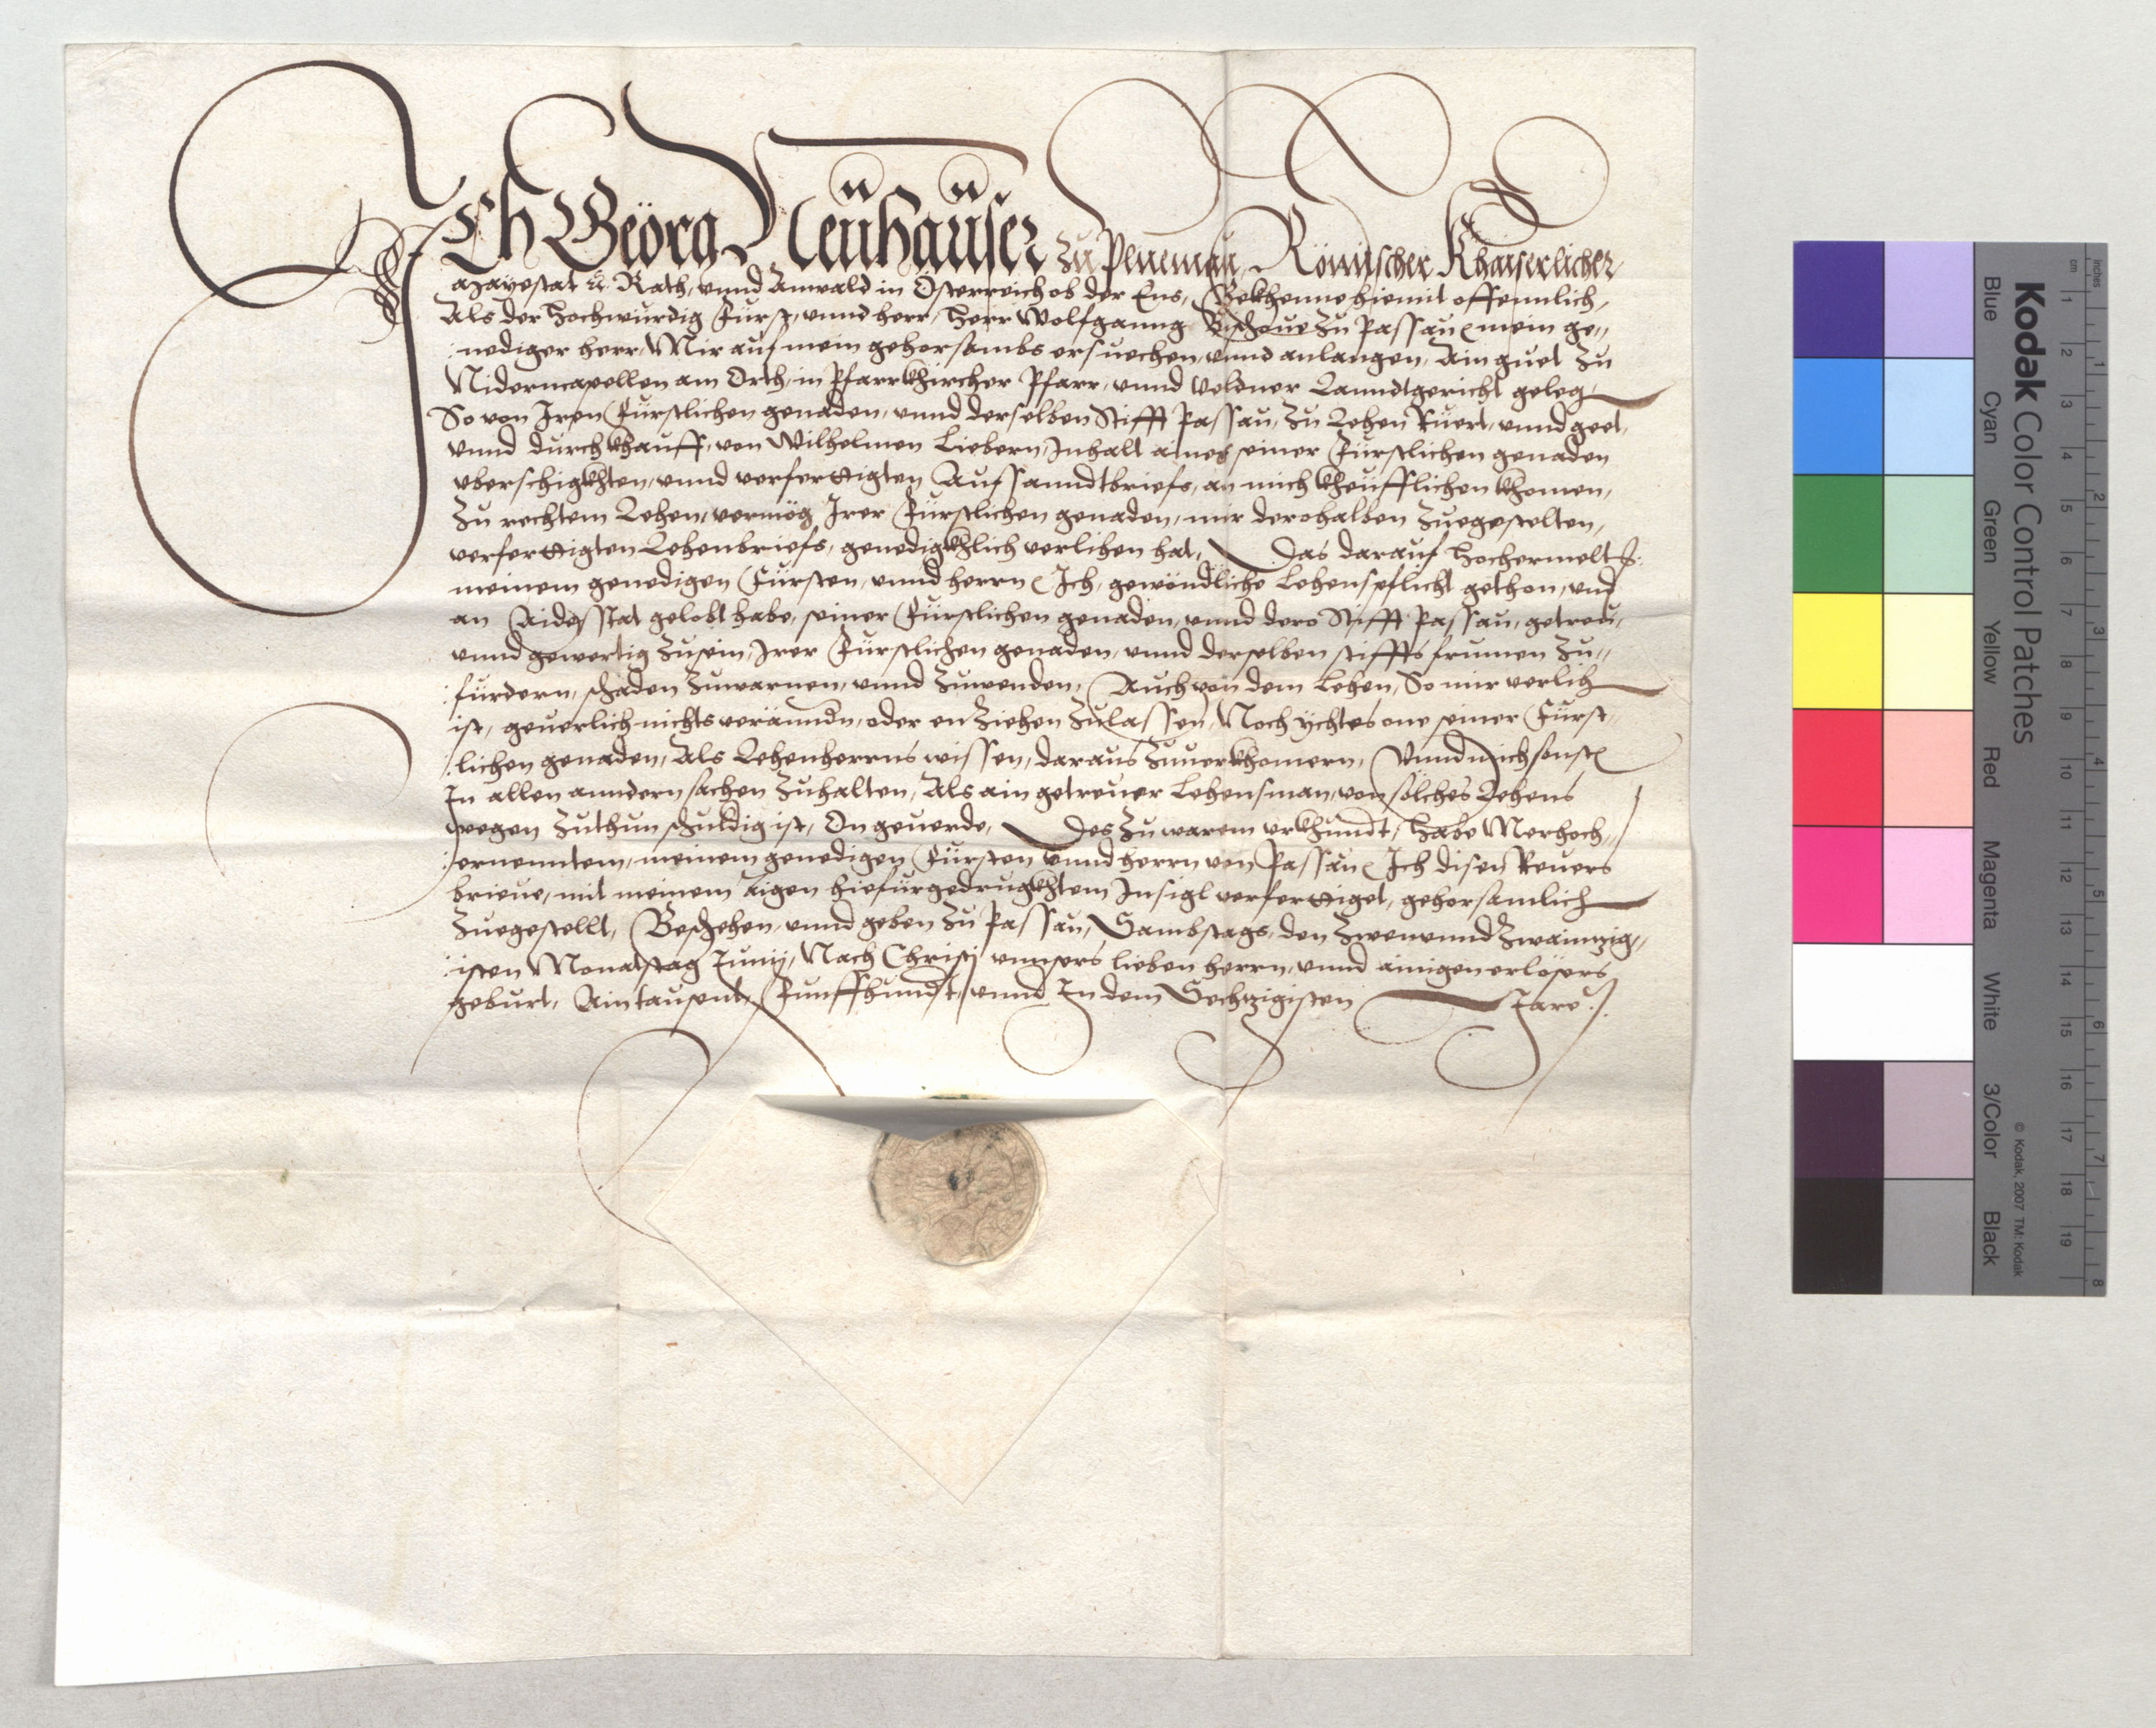 Ich Geörg Neühaüser zu Römischer Khaiserlicher
Mayestat &c. Rath, vnnd Anwald in Österreich ob der Ens, Bekhenne hiemit offennlich,
Als der Hochwürdig Fürst, vnnd herr, Herr Wolfganng Bischoue zu Passau mein ge-,
nediger herr, Mir auf mein gehorsambs ersuechen, vnnd anlangen, Ain guet zu
Niderncapellen am Orth, in Pfarrkhircher Pfarr, vnnd Veldner Lanndtgericht geleg
So von Iren Fürstlichen genaden, vnnd derselben Stifft Passau, zu Lehen Rüert, vnnd geet,
vnnd durch khauff, von Wilhelmen Liebern, Inhalt aines seiner Fürstlichen genaden
vberschigkhten, vnnd verferttigten Aufsanndtbriefs, an mich kheüfflichen khomen,
Zu rechtem Lehen, vermög Irer Fürstlichen genaden, mir derohalben zuegestelten,
verferttigten Lehenbriefs, genedigkhlich verlihen hat, Das darauf Hochermelt
meinem genedigen Fürsten, vnnd herrn Ich, gewöndliche Lehenspflicht gethon, vnd
an Aides stat gelobt habe, seiner Fürstlichen genaden, vnnd dero Stifft Passau, getreu,
vnnd gewertig zusein, Irer Fürstlichen genaden, vnnd derselben stiffts frumen zu-
fürdern, schaden zuwarnen, vnnd zuwenden, Auch von dem Lehen, So mir verlih
ist, geuerlich nichts veränndn, oder en ziehen zulassen, Noch ychtes one seiner Fürst-
lichen genaden, Als Lehenherrns wissen, daraus zuuerkhomern, Vnnd mich sonst
In allen anndern sachen zuhalten, Als ain getreuer Lehensman, von solches Lehens
wegen zuthun schuldig ist, On geuerde, Des zu warem vrkhundt, habe Merhoch-
ernenntem, meinem genedigen Fürsten vnnd herrn von Passau Ich disen Reuers
brieue, mit meinem aigen hiefürgedrugkhtem Insigl verferttiget, gehorsamlich
Zuegestellt, Beschehen, vnnd geben zu Passau, Sambstags, den zwenvnndzwaintzig-
isten Monatstag Junij, Nach Christj vnnsers lieben herrn, vnnd ainigen erlösers
geburt, Ain tausent, Funffhundt, vnnd In dem Sechtzigisten Jare.
Kodak Color Control Patches
Blue Cyan Green Yellow Red Magenta White 3/Color Black
© Kodak, 2007 TM: Kodak
inches 1 2 3 4 5 6 7 8
cm 1 2 3 4 5 6 7 8 9 10 11 12 13 14 15 16 17 18 19